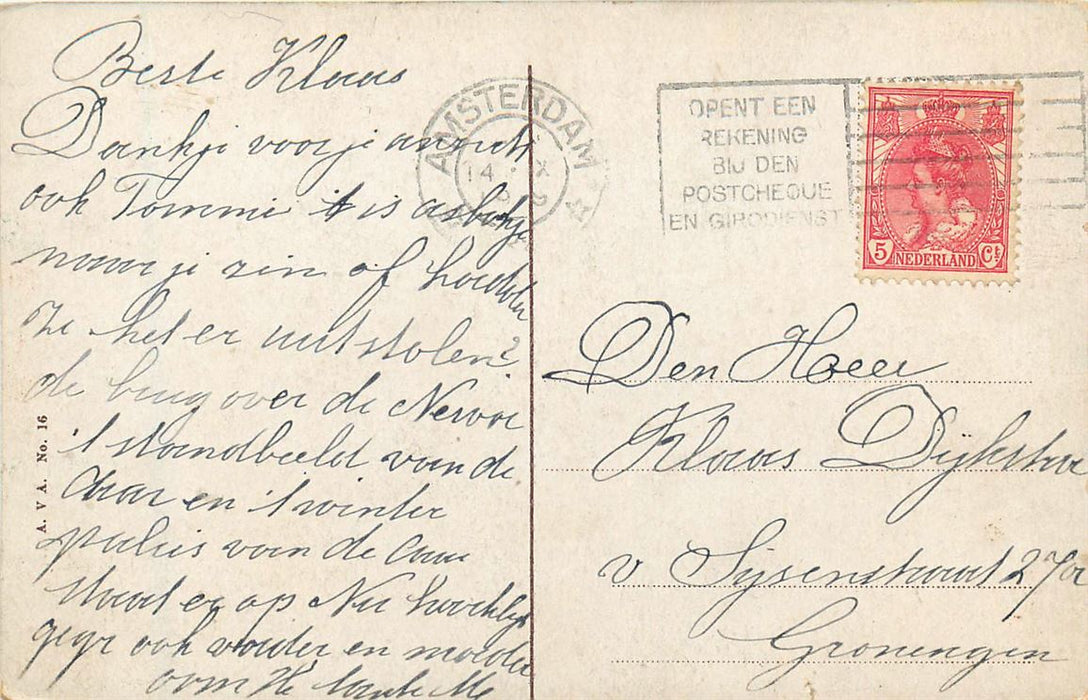 Beste Klaas
Dankje voor je anzicht
ook Tommie 't is asbakje
naar je zin of hadden
ze het er uit stolen?
de brug over de Newa
't standbeeld van de
Czaar en 't winter
paleis van de Czaar
staat er op Nu hartelijk
gegr ook vader en moeder
oom H tante M
A. V A. No. 16
AMSTERDAM
14 X
OPENT EEN
REKENING
BIJ DEN
POSTCHEQUE
EN GIRODIENST
5 NEDERLAND Ct
Den Heer
Klaas Dijkstra
v Sijsenstraat 27a
Groningen